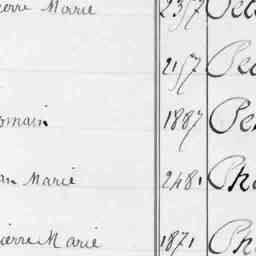 ierre Marie 2357
2157
omain 1887 Pe
an Marie 2481 Ph
ierre Marie 1871 Ph